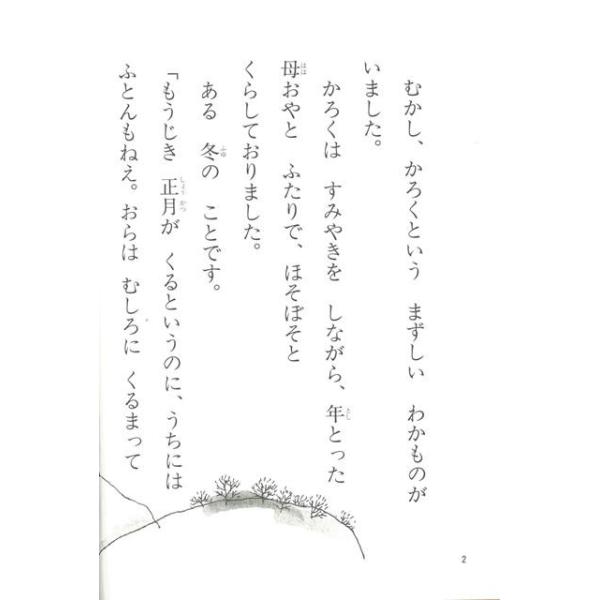 むかし、かろくという　まずしい　わかものが
いました。
かろくは　すみやきを　しながら、年とった
母おやと　ふたりで、ほそぼそと
くらしておりました。
ある　冬の　ことです。
「もうじき　正月が　くるというのに、うちには
ふとんもねえ。おらは　むしろに　くるまって
2